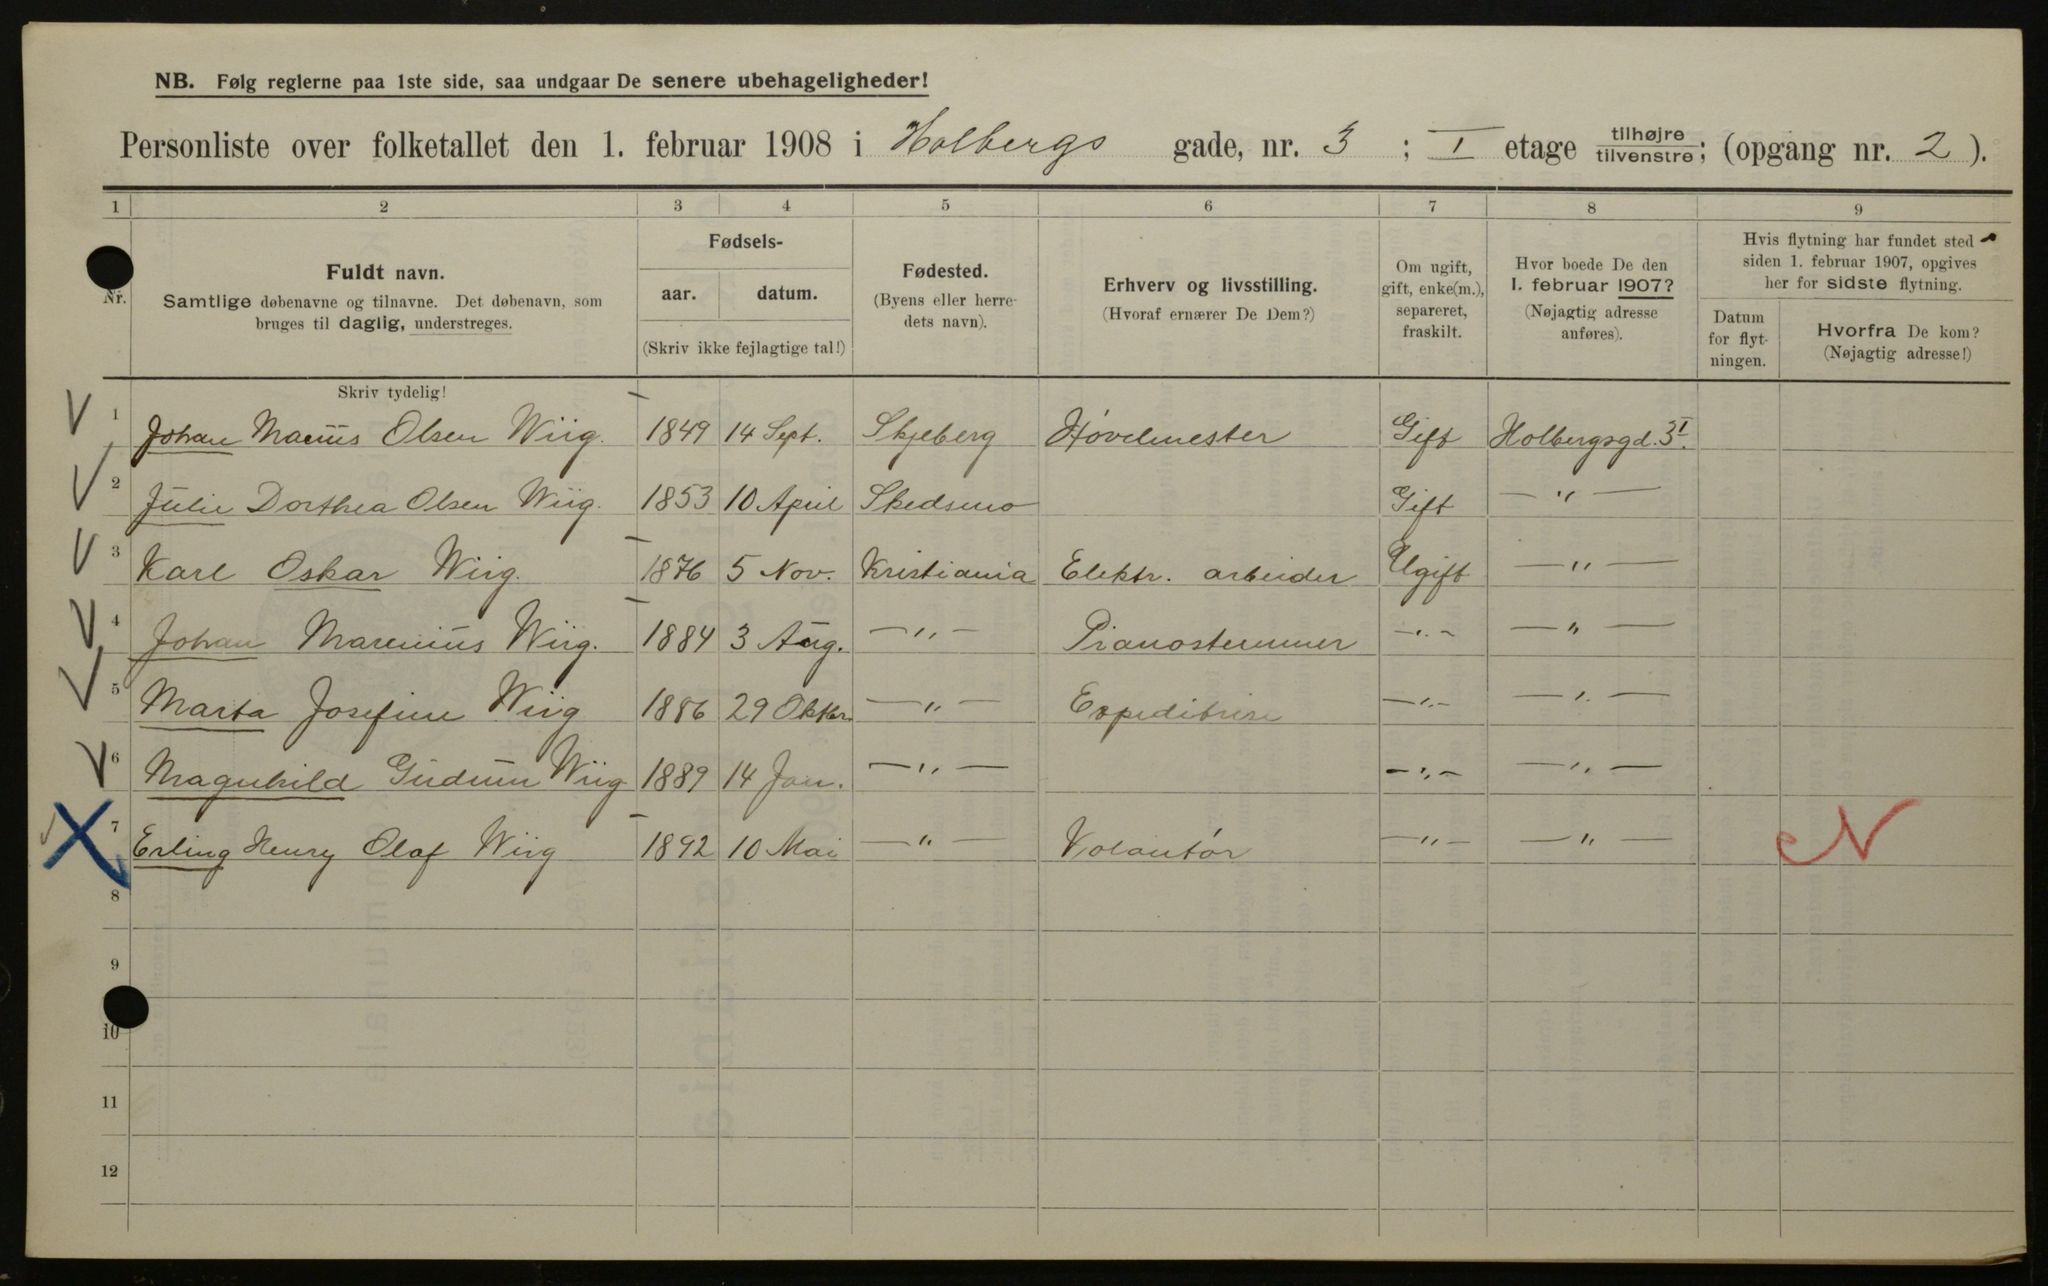 NB. Følg reglerne paa 1ste side, saa undgaar De senere ubehageligheder!
Personliste over folketallet den 1. februar 1908 i Holbergs gade, nr. 3 ; I etage tilhøjre/tilvenstre; (opgang nr. 2 ).
1 2 3 4 5 6 7 8 9
Nr.
Fuldt navn.
Samtlige døbenavne og tilnavne. Det døbenavn, som
bruges til daglig, understreges.
Fødsels-
aar. datum.
(Skriv ikke fejlagtige tal!)
Fødested.
(Byens eller herre-
dets navn).
Erhverv og livsstilling.
(Hvoraf ernærer De Dem?)
Om ugift,
gift, enke(m.),
separeret,
fraskilt.
Hvor boede De den
1. februar 1907?
(Nøjagtig adresse
anføres).
Hvis flytning har fundet sted
siden 1. februar 1907, opgives
her for sidste flytning.
Datum
for flyt-
ningen.
Hvorfra De kom?
(Nøjagtig adresse!)
Skriv tydelig!
1 Johan Marius Olsen Wiig. 1849 14 Sept. Skjeberg Høvlmester Gift Holbergsgd. 3 I.
2 Julie Dorthea Olsen Wiig. 1853 10 April Skedsmo Gift — " —
3 Karl Oskar Wiig. 1876 5 Nov. Kristiania Elektr. arbeider Ugift — " —
4 Johan Marenius Wiig. 1884 3 Aug. — " — Pianostemmer — " — — " —
5 Marta Josefine Wiig 1886 29 Oktbr. — " — Expeditrise — " — — " —
6 Magnhild Gudrun Wiig 1889 14 Jan. — " — — " — — " —
7 Erling Henry Olaf Wiig 1892 10 Mai — " — Volontør — " — — " — N
8
9
10
11
12